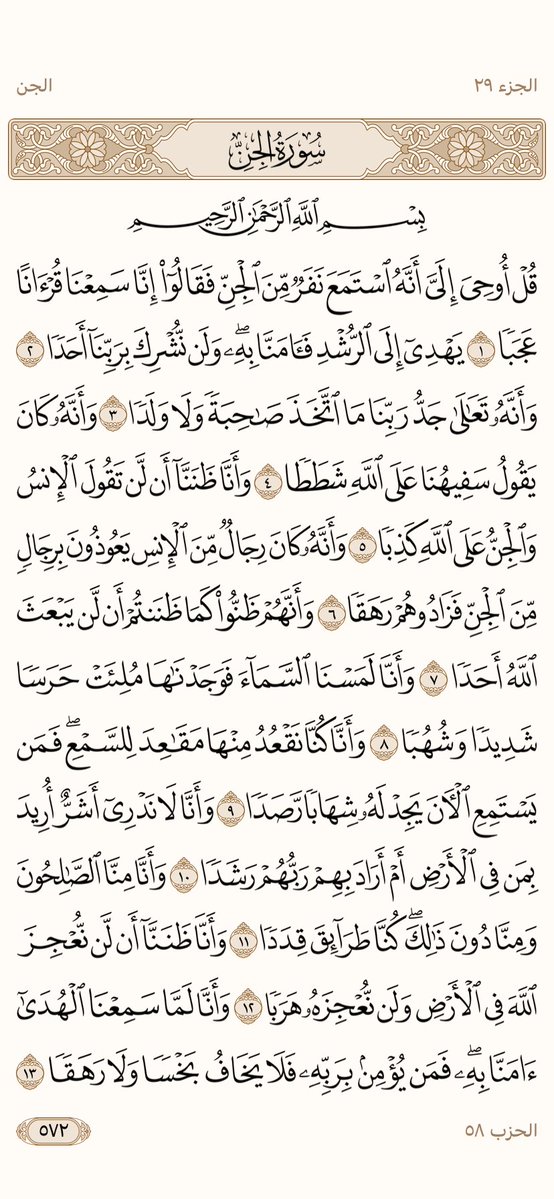 الجزء ٢٩
الجن
سُورَةُ الجِنِّ
بِسۡمِ ٱللَّهِ ٱلرَّحۡمَٰنِ ٱلرَّحِيمِ
قُلۡ أُوحِيَ إِلَيَّ أَنَّهُ ٱسۡتَمَعَ نَفَرٞ مِّنَ ٱلۡجِنِّ فَقَالُوٓاْ إِنَّا سَمِعۡنَا قُرۡءَانًا
عَجَبٗا ١ يَهۡدِيٓ إِلَى ٱلرُّشۡدِ فَـَٔامَنَّا بِهِۦۖ وَلَن نُّشۡرِكَ بِرَبِّنَآ أَحَدٗا ٢
وَأَنَّهُۥ تَعَٰلَىٰ جَدُّ رَبِّنَا مَا ٱتَّخَذَ صَٰحِبَةٗ وَلَا وَلَدٗا ٣ وَأَنَّهُۥ كَانَ
يَقُولُ سَفِيهُنَا عَلَى ٱللَّهِ شَطَطٗا ٤ وَأَنَّا ظَنَنَّآ أَن لَّن تَقُولَ ٱلۡإِنسُ
وَٱلۡجِنُّ عَلَى ٱللَّهِ كَذِبٗا ٥ وَأَنَّهُۥ كَانَ رِجَالٞ مِّنَ ٱلۡإِنسِ يَعُوذُونَ بِرِجَالٖ
مِّنَ ٱلۡجِنِّ فَزَادُوهُمۡ رَهَقٗا ٦ وَأَنَّهُمۡ ظَنُّواْ كَمَا ظَنَنتُمۡ أَن لَّن يَبۡعَثَ
ٱللَّهُ أَحَدٗا ٧ وَأَنَّا لَمَسۡنَا ٱلسَّمَآءَ فَوَجَدۡنَٰهَا مُلِئَتۡ حَرَسٗا
شَدِيدٗا وَشُهُبٗا ٨ وَأَنَّا كُنَّا نَقۡعُدُ مِنۡهَا مَقَٰعِدَ لِلسَّمۡعِۖ فَمَن
يَسۡتَمِعِ ٱلۡأٓنَ يَجِدۡ لَهُۥ شِهَابٗا رَّصَدٗا ٩ وَأَنَّا لَا نَدۡرِيٓ أَشَرٌّ أُرِيدَ
بِمَن فِي ٱلۡأَرۡضِ أَمۡ أَرَادَ بِهِمۡ رَبُّهُمۡ رَشَدٗا ١٠ وَأَنَّا مِنَّا ٱلصَّٰلِحُونَ
وَمِنَّا دُونَ ذَٰلِكَۖ كُنَّا طَرَآئِقَ قِدَدٗا ١١ وَأَنَّا ظَنَنَّآ أَن لَّن نُّعۡجِزَ
ٱللَّهَ فِي ٱلۡأَرۡضِ وَلَن نُّعۡجِزَهُۥ هَرَبٗا ١٢ وَأَنَّا لَمَّا سَمِعۡنَا ٱلۡهُدَىٰٓ
ءَامَنَّا بِهِۦۖ فَمَن يُؤۡمِنۢ بِرَبِّهِۦ فَلَا يَخَافُ بَخۡسٗا وَلَا رَهَقٗا ١٣
الحزب ٥٨
٥٧٢